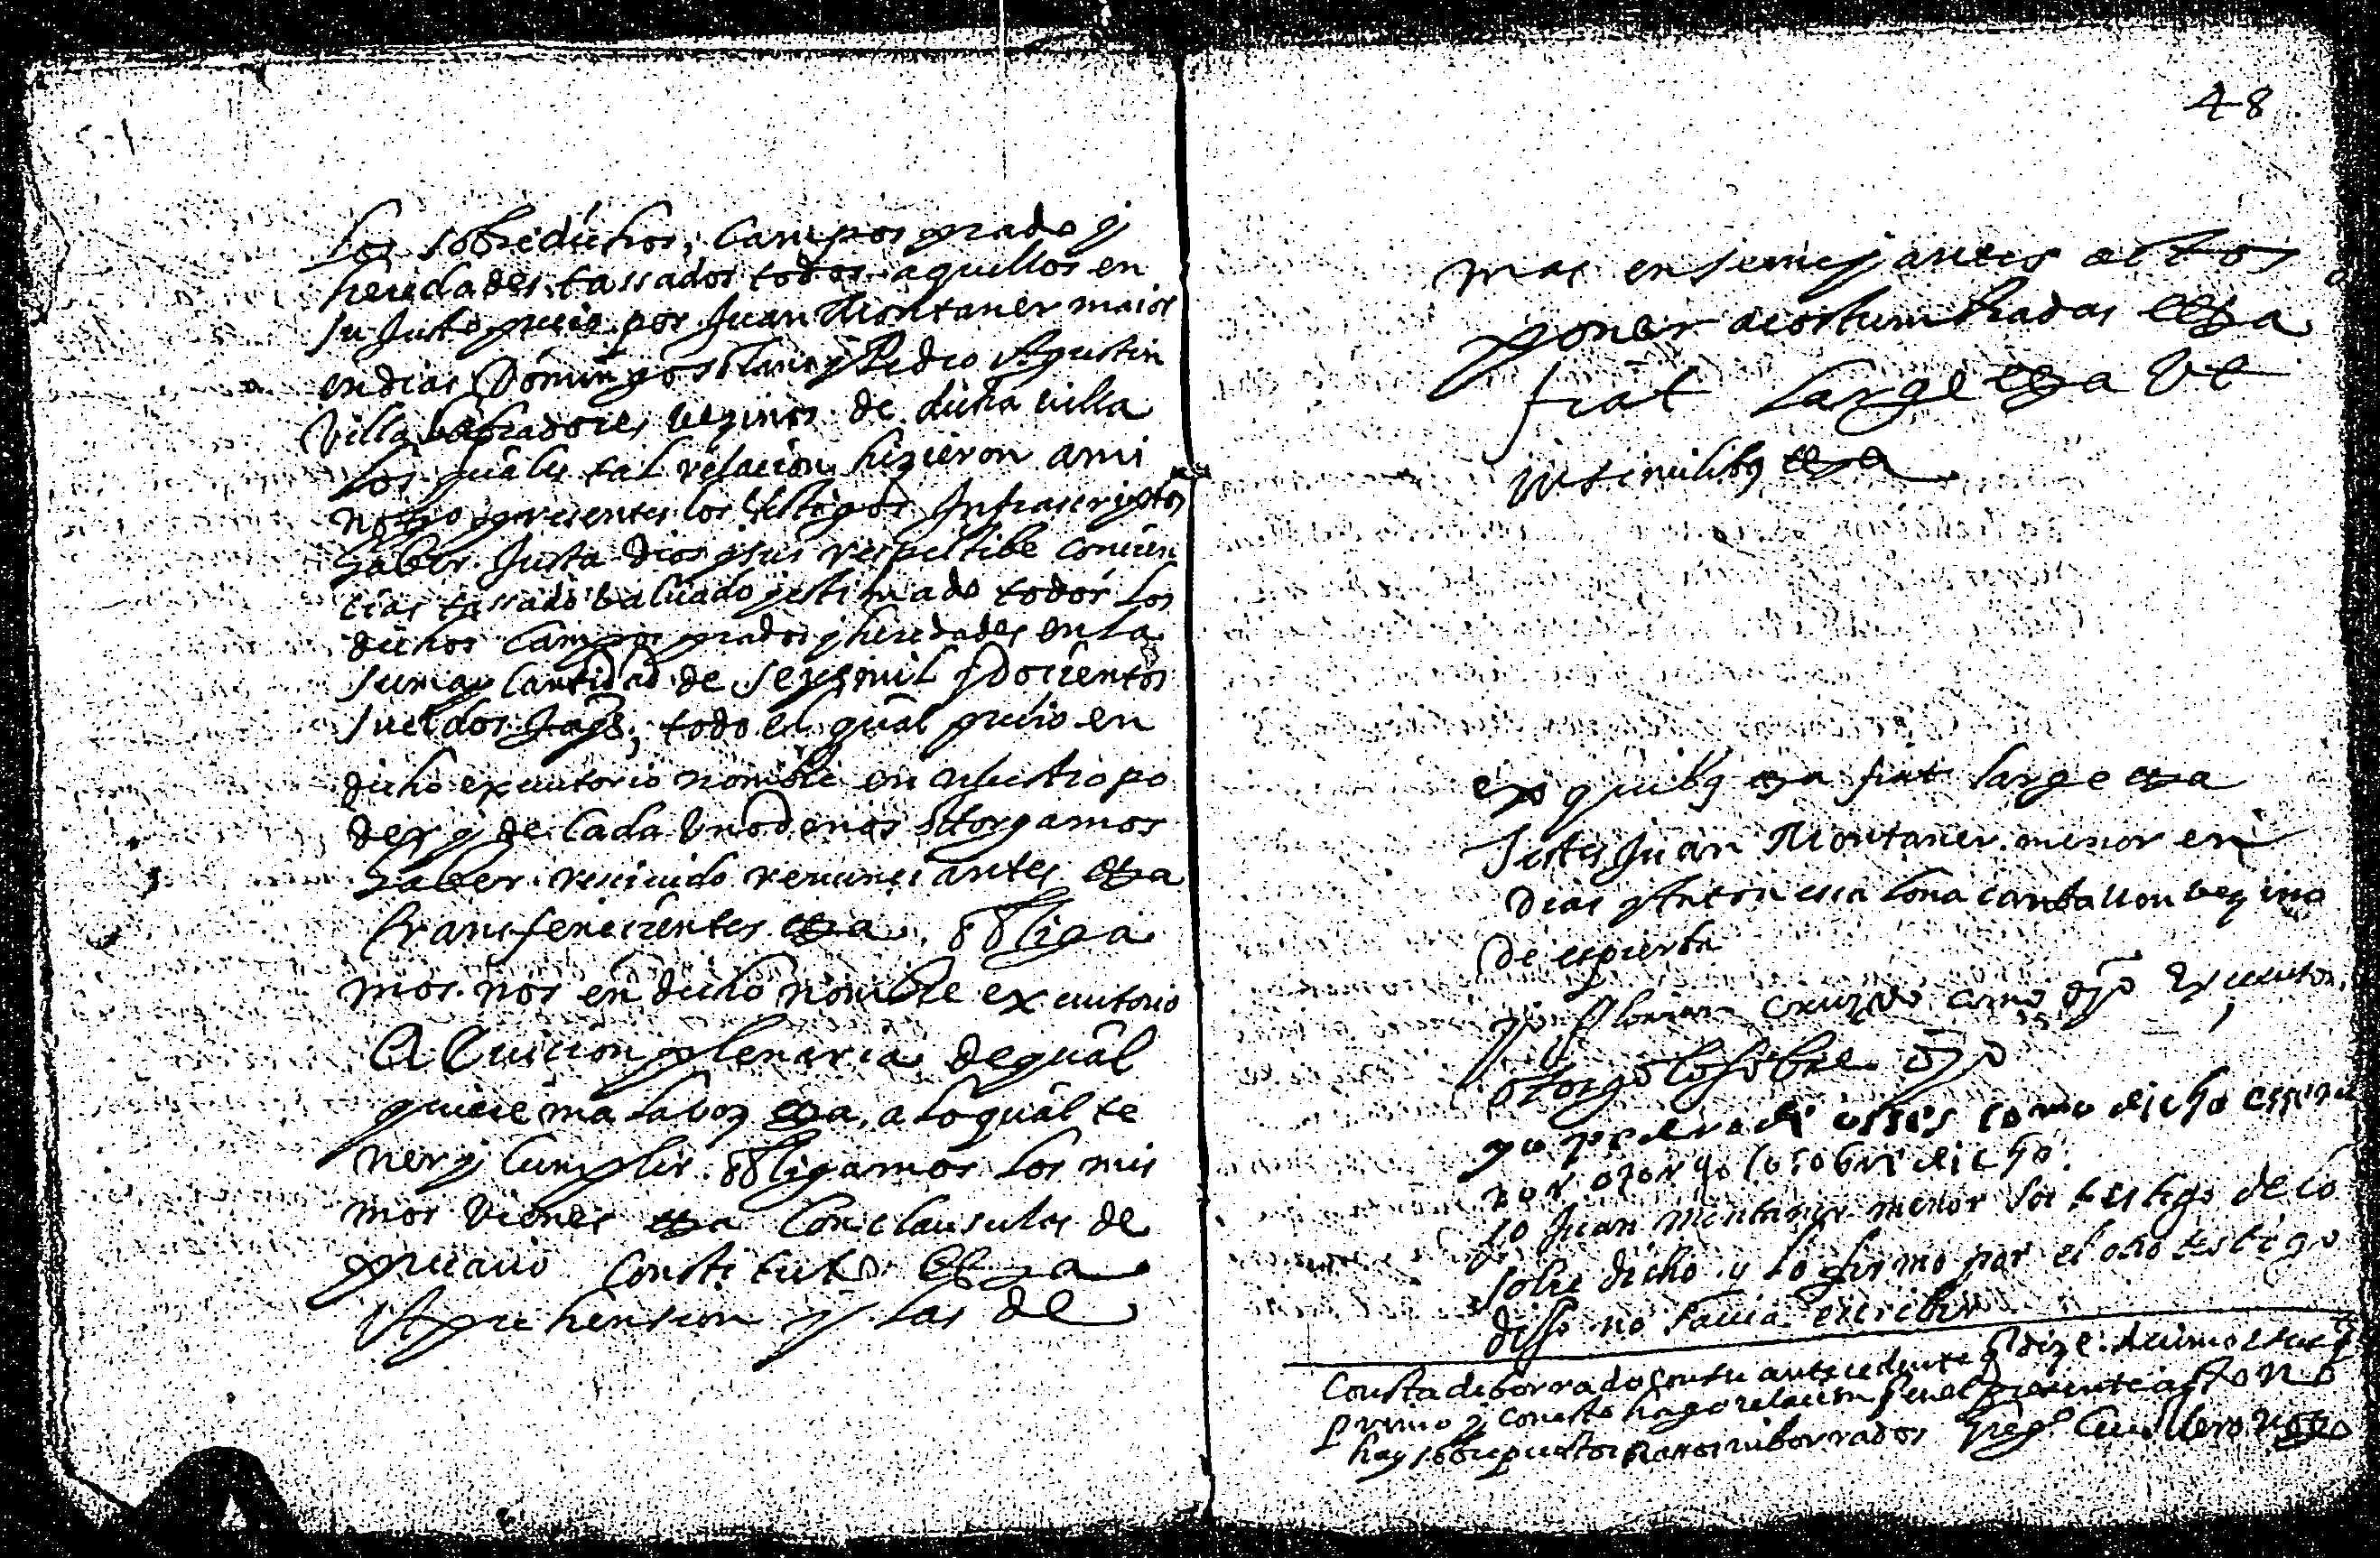 los sobredichos, campos prado y
heredades tassados todos aquellos en
su justo precio por Juan Montaner maior
en dias Domingo y Pedro Agustin
Villa labradores vezinos de dicha villa
los quales tal relacion hizieron a mi
notrio presentes los testigos Infrascriptos
haber Justa dios y sus respectibe concien
cias tassado baluado y estimado todos los
dichos campos prados y heredades en la
suma y cantidad de seys mil y docientos
sueldos Jaqs; todo el qual precio en
dicho executorio nombre en nuestro po
der y de cada vno de nos otorgamos
haber reciuido renunciantes etza
transferecientes etza. obliga
mos nos en dicho nombre executorio
A Euiccion plenaria de qual
quiere mala boz etza, a lo qual te
ner y cumplir obligamos los mis
mos vienes etza con clausulas de
precario constituto etza
Aprehension y las de
48
mas en semejantes actos
poner acostumbradas etza
fiat large etza vt
in similibus etza
ex quibus etza fiat large etza
Testes Juan Montaner menor en
dias y Anton vezino
de espierba
yo como dho executor
otorgo lo sobre dho
yo como dicho
otorgo lo sobre dicho
yo Juan Montaner menor soi testigo de lo
sobre dicho y lo firmo por el otro testigo
dijo no sauia escribir
Consta de borrado en su antecedente q dize
primo y con esto hago relacion q en el presente acto no
hay sobrepuestos rasos ni borrados Greg.